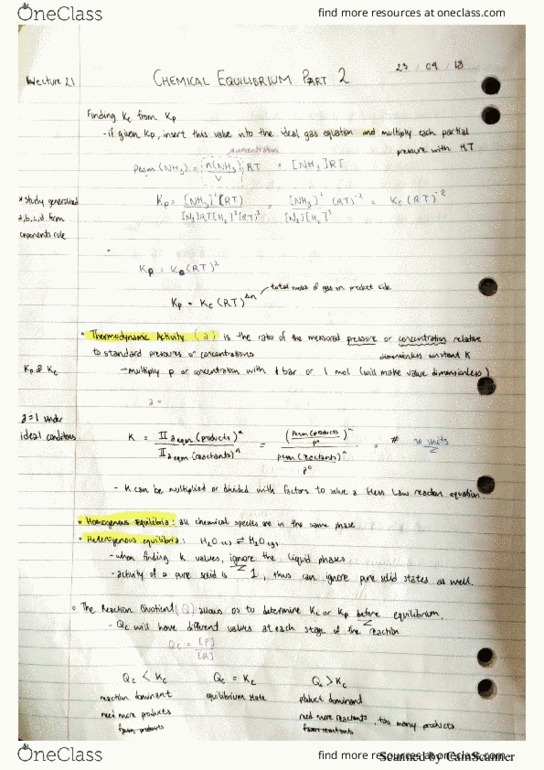 OneClass
find more resources at oneclass.com
Lecture 21
CHEMICAL EQUILIBRIUM PART 2
23 / 04 / 18
Finding Kc from Kp
- if given Kp, insert this value into the ideal gas equation and multiply each partial
pressure with RT
Peqm (NH3) = n(NH3) RT = [NH3]RT
V
* study generalised
a,b,c,d from
exponents rule
Kp = [NH3]²(RT)² = [NH3]² (RT)⁻² = Kc (RT)⁻²
[N2]RT[H2]³(RT)³ [N2][H2]³
Kp = Kc(RT)²
total moles of gas on product side
Kp = Kc(RT)Δn
• Thermodynamic Activity (a) is the ratio of the measured pressure or concentration relative
to standard pressures or concentrations
dimensionless constant K
Kp ≠ Kc
- multiply p or concentration with 1 bar or 1 mol (will make value dimensionless)
a =
a=1 under
ideal conditions
K = Π aeqm (products)ⁿ = (Peqm (products) / p°)ⁿ = # no units
Π aeqm (reactants)ⁿ (Peqm (reactants) / p°)ⁿ
- K can be multiplied or divided with factors to solve a Hess Law reaction equation
• Homogenous Equilibria: all chemical species are in the same phase
• Heterogenous equilibria: H2O (l) ⇌ H2O (g)
- when finding K values, ignore the liquid phases
- activity of a pure solid is 1, thus can ignore pure solid states as well.
• The Reaction Quotient (Q) allows us to determine Kc or Kp before equilibrium.
- Qc will have different values at each stage of the reaction
Qc = [P]
[R]
Qc < Kc Qc = Kc Qc > Kc
reaction dominant equilibrium state product dominant
need more products need more reactants, too many products
OneClass
find more resources at oneclass.com
Scanned by CamScanner